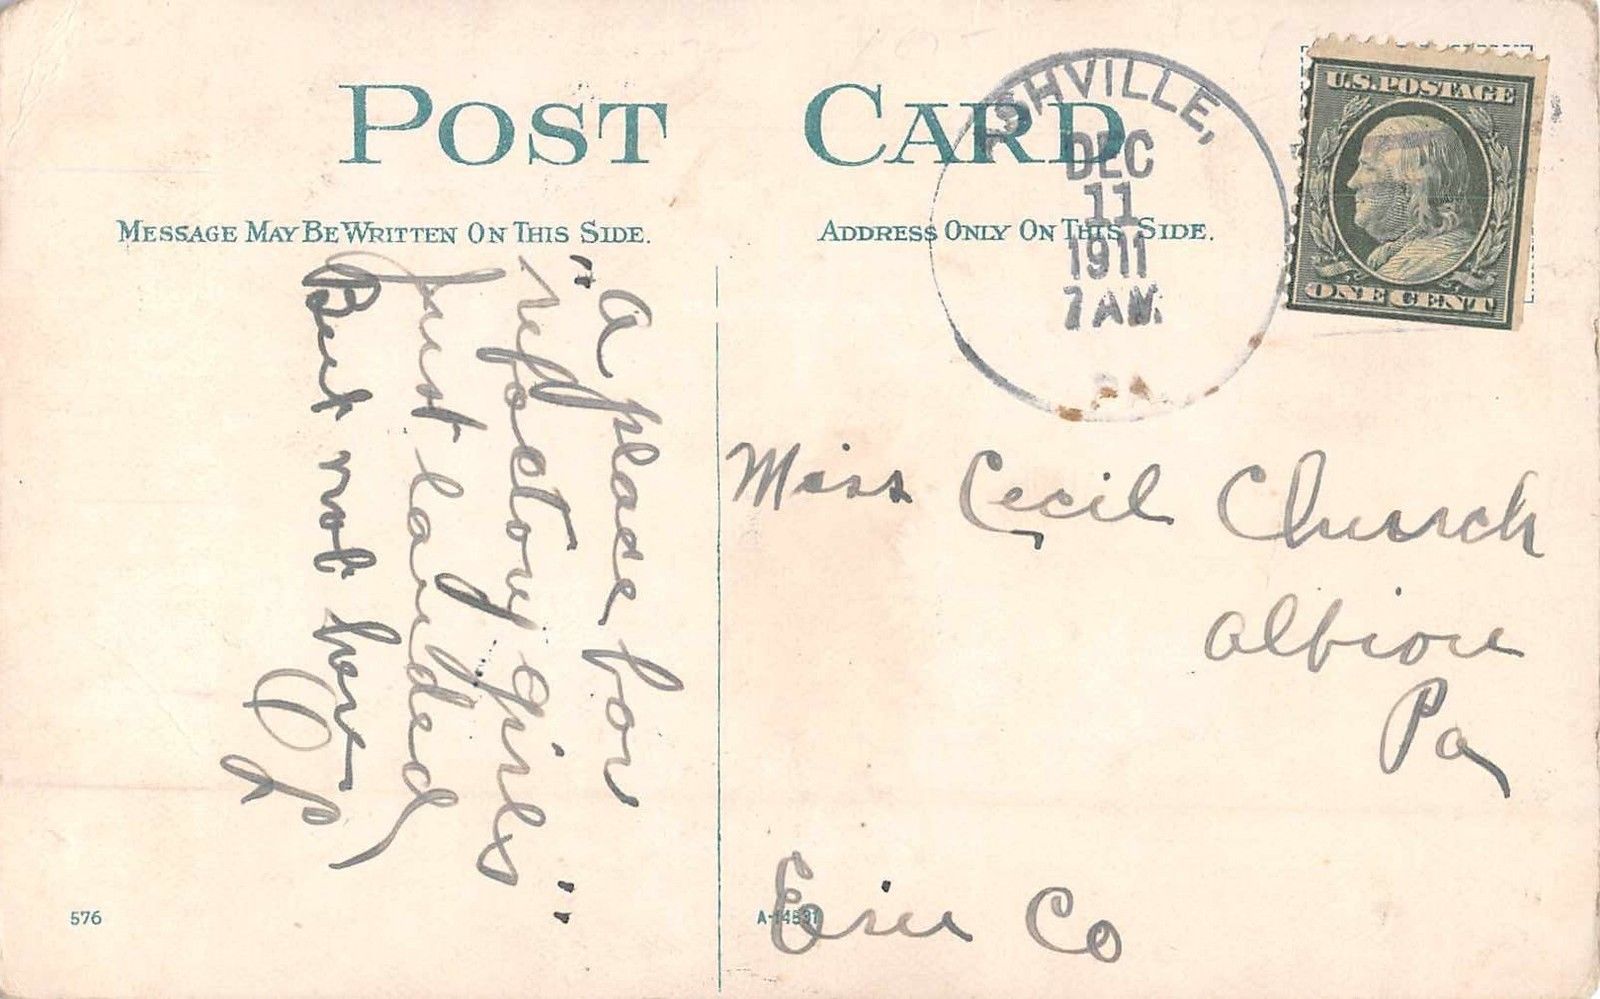 POST CARD
MESSAGE MAY BE WRITTEN ON THIS SIDE.
ADDRESS ONLY ON THIS SIDE.
SHVILLE,
DEC
11
1911
7 AM.
PA.
U.S. POSTAGE
ONE CENT
"a place for
refoctory girls"
just landed,
But not here
Miss Cecil Church
Albion
Pa
Erie Co
576
A-14591